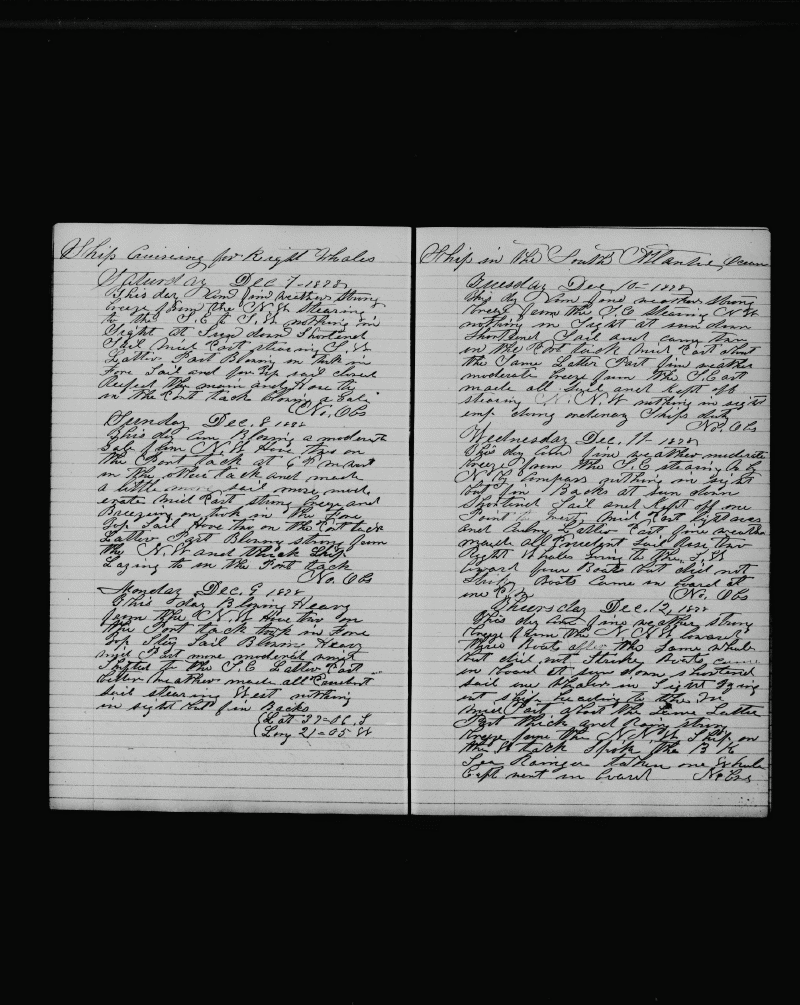 Ship Cruising for Right Whales
Saturday Dec 7-1878
This day fine weather strong
breeze from the N.W. Stearing
to the S.E. & S.W. nothing in
Sight at Sun down Shortend
Sail Mid Part stearing S.W.
Latter Part Blowing on took in
Fore Sail and for top sail closed
Reefed the main and Hove to
on the Port tack blowing a Gale
No. Obs
Sunday Dec. 8 1878
This day Com Blowing a moderate
Gale from N.W. Hove too on
the Port tack at 6 P.m. went
on the other tack and made
a little more sail more mod-
erate Mid Part strong breeze and
Breezing on took in the Fore
Top Sail Hove too on the Port tack
Latter Part Blowing strong from
the N.W. and thick Ship
Laying to on the Port tack
No. Obs
Monday Dec. 9 1878
This day Blowing Heavy
from the N.W. Hove too on
the Port tack took in Fore
Top Stay Sail Blowin Heavy
mid Part more moderate wind
Shifted to the S.E. Latter Part
better weather made all Prudent
sail stearing West nothing
in sight but fin Backs
Lat 37=06. S
Long 21=05 W
Ship in the South Atlantic Ocean
Tuesday Dec 10-1878
This day Com fine weather strong
breeze from the S.E. Stearing N.W.
nothing in Sight at sun down
Shortend Sail and came too
on the Port tack Mid Part about
the Same Latter Part fine weather
moderate breeze from the S.East
made all Sail and kept off
stearing N.N.W. nothing in sight
emp. doing ordenary Ships duty
No. Obs
Wednesday Dec. 11-1878
This day Com fine weather moderate
breeze from the S.E. stearing
N.W. by Compass nothing in sight
but fin Backs at sun down
Shortend Sail and kept off one
Point Mid Part light aires
and Calm Latter Part fine weather
made all Prudent Sail saw two
Right Whales going to the S.W.
Lowerd four Boats but did not
Strike Boats Came on board at
No. Obs
Thursday Dec. 12, 1878
This day Com fine weather strong
breeze from the N.N.W. Lowerd
three Boats after the Same whale
but did not Strike Boats came
on board at sun down shortend
sail one Whaler in Sight Lying
mid Part about the Same Latter
Part thick and Rainy strong
breeze from the N.N.W. Ship on
the W. tack Spok the B K
Sea Ranger taken one Whale
Capt went on board No Obs